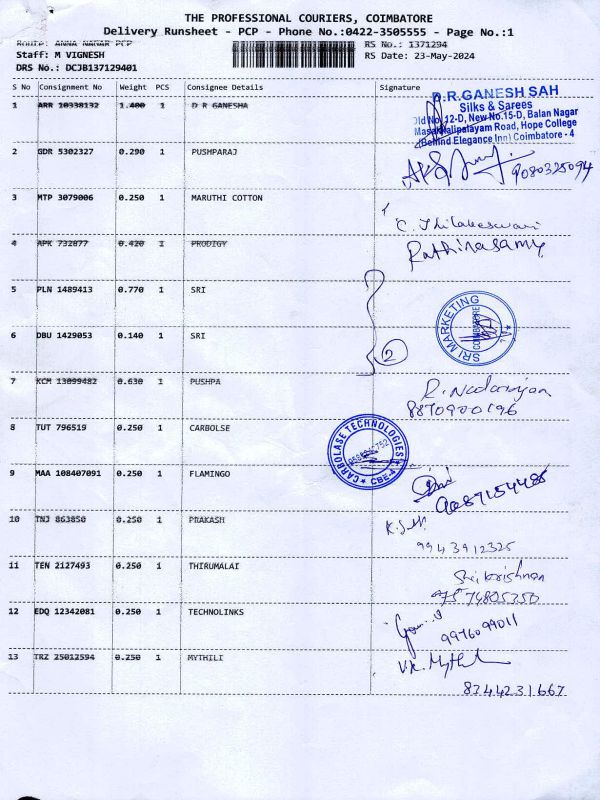 THE PROFESSIONAL COURIERS, COIMBATORE
Delivery Runsheet - PCP - Phone No.:0422-3505555 - Page No.:1
Route: ANNA NAGAR PCP RS No.: 1371294
Staff: M VIGNESH RS Date: 23-May-2024
DRS No.: DCJB137129401
S No Consignment No Weight PCS Consignee Details Signature
1 ARR 10338132 1.400 1 D R GANESHA
D.R.GANESH SAH
Silks & Sarees
Old No.12-D, New No.15-D, Balan Nagar
Masakalipalayam Road, Hope College
(Behind Elegance Inn) Coimbatore - 4
2 GDR 5302327 0.290 1 PUSHPARAJ
9080325094
3 MTP 3079006 0.250 1 MARUTHI COTTON
C. Thilakeswari
4 APK 732877 0.420 1 PRODIGY
Rathinasamy
5 PLN 1489413 0.770 1 SRI
SRI MARKETING
COIMBATORE
6 DBU 1429053 0.140 1 SRI
2
7 KCM 13099482 0.630 1 PUSHPA
R. Nadarajan
8870900196
8 TUT 796519 0.250 1 CARBOLSE
CARBOLASE TECHNOLOGIES
CBE-4
9 MAA 108407091 0.250 1 FLAMINGO
10 TNJ 863850 0.250 1 PRAKASH
9943912325
11 TEN 2127493 0.250 1 THIRUMALAI
Srikrishnan
12 EDQ 12342081 0.250 1 TECHNOLINKS
9976099011
13 TRZ 25012594 0.250 1 MYTHILI
8744231667